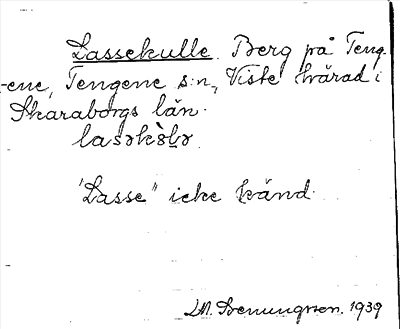 Lassekulle. Berg på Teng-
-ene, Tengene s:n, Viste härad i
Skaraborgs län.
"Lasse" icke känd.
1939